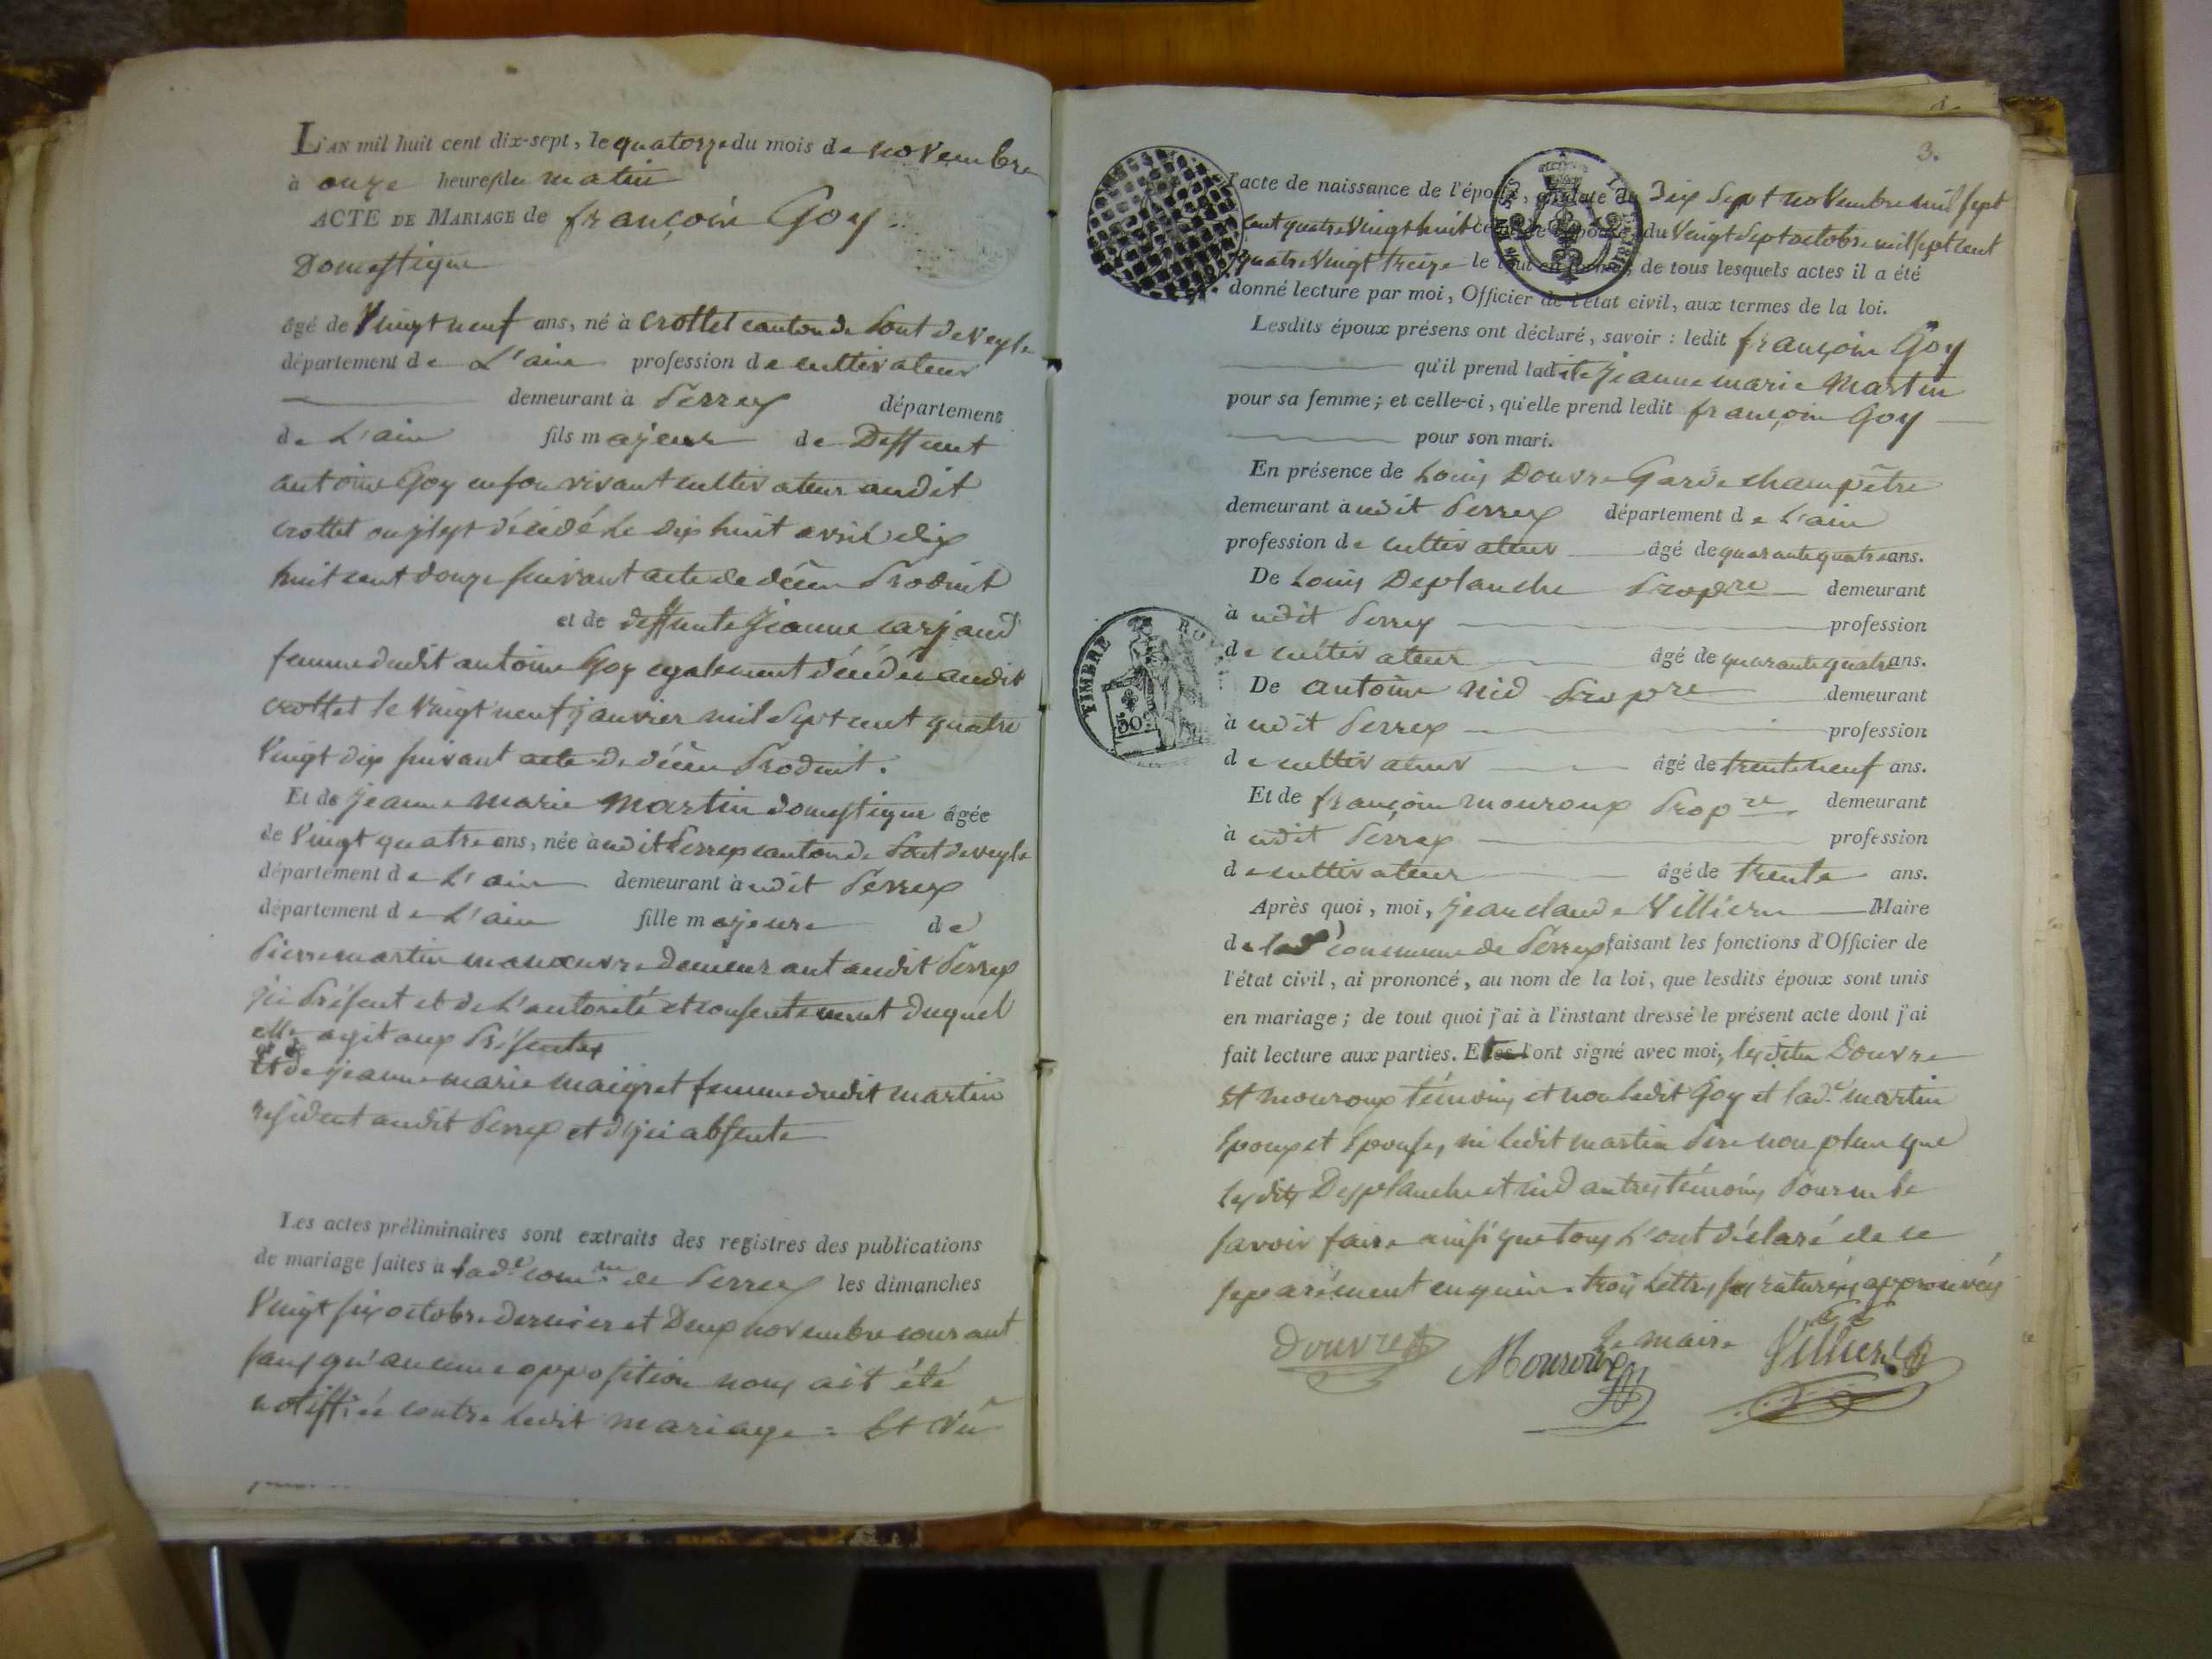 L'AN mil huit cent dix-sept, le quatorze du mois de novembre
à onze heures du matin
ACTE DE MARIAGE de françois Goy
Domestique
âgé de Vingt neuf ans, né à Crottet canton de Pont de Veyle
département de L'ain profession de cultivateur
demeurant à Perrex département
de L'ain fils majeur de Deffunt
antoine Goy en son vivant cultivateur audit
Crottet ou il est décédé le dix huit avril dix
huit cent douze suivant acte de décès Produit
et de deffunte Jeanne
femme dudit antoine Goy egalement décédée audit
crottet le Vingt neuf janvier mil Sept cent quatre
Vingt dix suivant acte de décès Produit.
Et de jeanne marie Martin domestique âgée
de Vingt quatre ans, née audit Perrex canton de Pont de veyle
département de L'ain demeurant audit Perrex
département de L'ain fille majeure de
Pierre martin manœuvre demeurant audit Perrex
ici Présent et de L'autorité et consentement duquel
elle agit aux Présentes
et de
Et de jeanne marie maigret femme dudit martin
résident audit Perrex et d'ici absente
Les actes préliminaires sont extraits des registres des publications
de mariage faites à lad.e comm.ne de Perrex les dimanches
Vingt six octobre dernier et Deux novembre courant
sans qu'aucune opposition nous ait été
notiffiée contre ledit mariage = Et Vu
3.
l'acte de naissance de l'époux, en date du Dix Sept novembre mil sept
cent quatre Vingt huit celui de l'épouse du Vingt Sept octobre mil sept cent
quatre Vingt treize le tout en forme; de tous lesquels actes il a été
donné lecture par moi, Officier de l'état civil, aux termes de la loi.
Lesdits époux présens ont déclaré, savoir : ledit françois Goy
qu'il prend ladite Jeanne marie Martin
pour sa femme; et celle-ci, qu'elle prend ledit françois Goy
pour son mari.
En présence de Louis Douvre Garde champêtre
demeurant audit Perrex département de L'ain
profession de cultivateur âgé de quarante quatre ans.
De Louis Deplanche Prop.re demeurant
à udit Perrex profession
de cultivateur âgé de quarante quatre ans.
De antoine Nid Prop.re demeurant
à udit Perrex profession
de cultivateur âgé de trente neuf ans.
Et de françois mouroux Prop.re demeurant
à udit Perrex profession
de cultivateur âgé de trente ans.
Après quoi, moi, jean claude Villiers Maire
de la commune de Perrex faisant les fonctions d'Officier de
l'état civil, ai prononcé, au nom de la loi, que lesdits époux sont unis
en mariage; de tout quoi j'ai à l'instant dressé le présent acte dont j'ai
fait lecture aux parties. Et l'ont signé avec moi, lesdits Douvre
Et mouroux témoins et non ledit Goy et lad.e martin
Epoux et Epouse, ni ledit martin Père non plus que
lesdits Desplanche et nid autres témoins Pour ne le
savoir faire ainsi que tous L'ont déclaré de ce
separément enquis. trois Lettres raturées approuvées
TIMBRE ROYAL
50
Douvre
Mouroux
Le maire Villiers